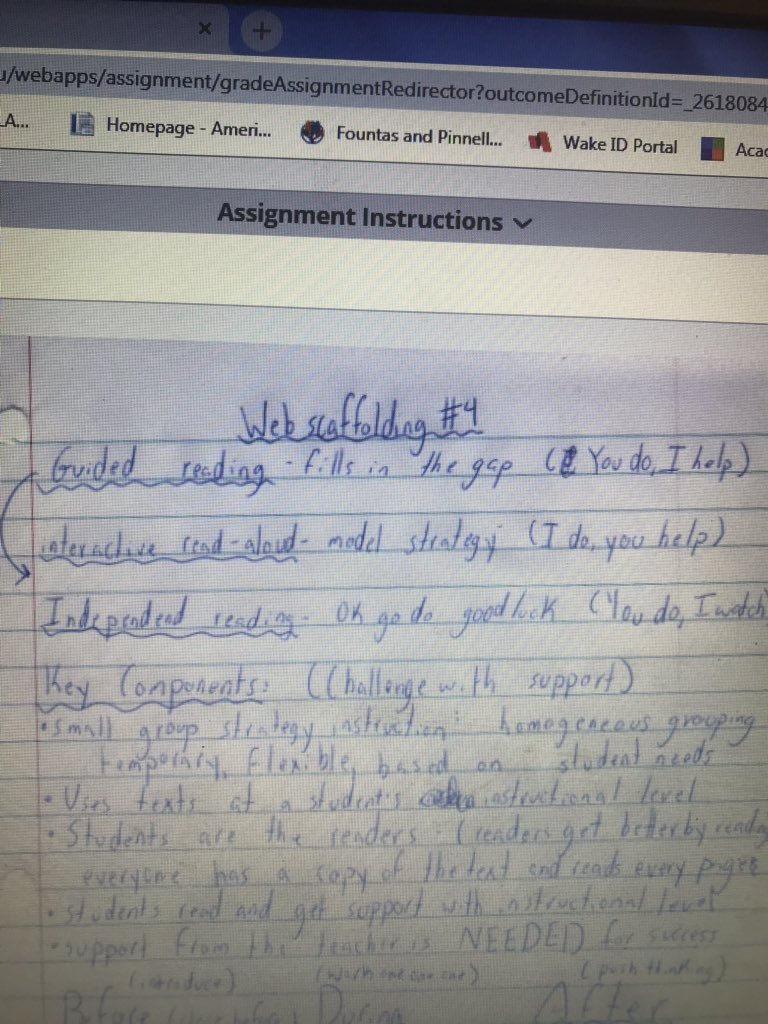 u/webapps/assignment/gradeAssignmentRedirector?outcomeDefinitionId=_2618084
A... Homepage - Ameri... Fountas and Pinnell... Wake ID Portal Acad
Assignment Instructions
Web scaffolding #4
Guided reading - fills in the gap ( You do, I help)
interactive read-aloud - model strategy (I do, you help)
Independend reading - OK go do good luck (You do, I watch
Key Components: (Challenge with support)
• small group strategy instruction: homogeneous grouping
temporary, flexible, based on student needs
• Uses texts at a student's instructional level
• Students are the readers - (readers get better by reading
everyone has a copy of the text and reads every page
• students read and get support with instructional level
• support from the teacher is NEEDED for success
(introduce) (work one on one) (push thinking)
Before During After